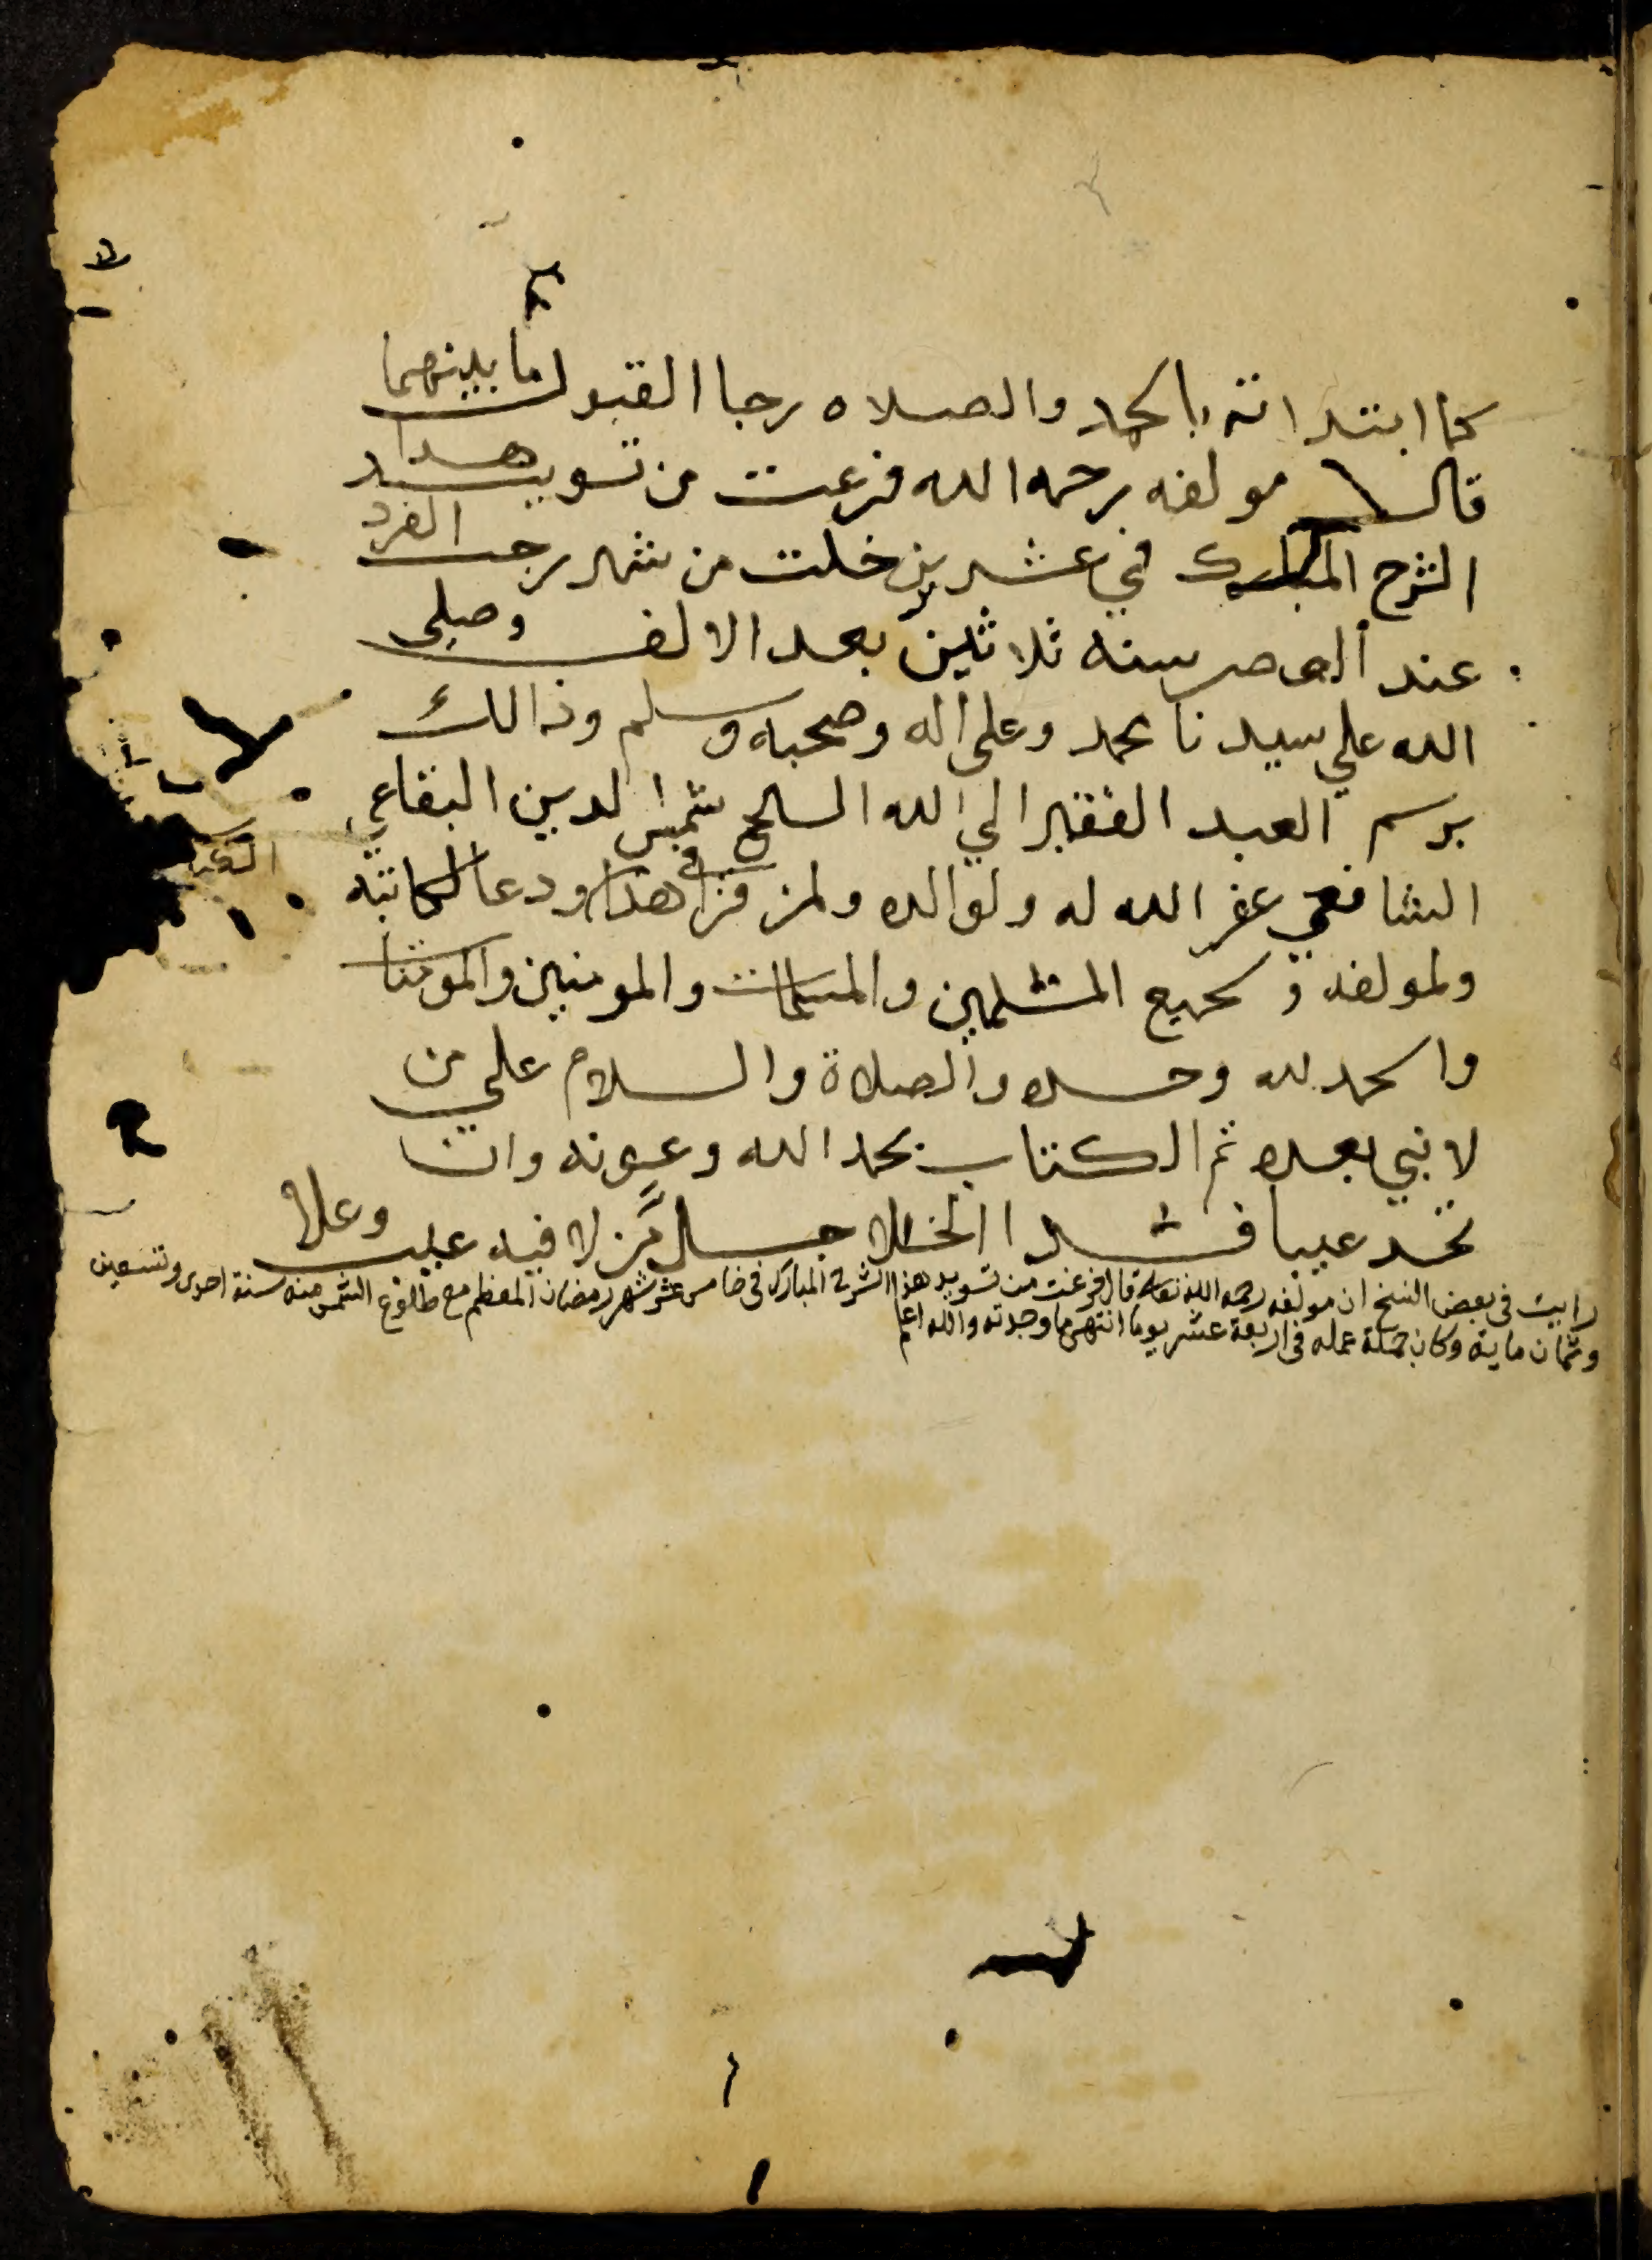 كما ابتداته بالحمد والصلاه رجا القبول ما بينهما
قال مولفه رحمه الله فرغت من تسويد هدا
الشرح المبارك في عشرين خلت من شهر رجب الفرد
عند العصر سنه ثلاثين بعد الالف وصلى
الله علي سيدنا محمد وعلى اله وصحبه وسلم وذالك
برسم العبد الفقير الي الله الشيخ شمس الدين البقاعي
الشافعي غفر الله له ولوالده ولمن قرا في هدا ودعا لكاتبه
ولمولفه و لجميع المسلمين والمسلمات والمومنين والمومنا
والحمد لله وحده والصلاة والسلام علي من
لا نبي بعده تم الكتاب بحمد الله وعونه وان
تجد عيبا فسد الخللا جل من لا فيه عيب وعلا
رايت فى بعض النسخ ان مولفه رحمه الله تعالى قال فرغت من تسويد هذا الشرح المبارك فى خامس عشر شهر رمضان المعظم مع طلوع الشمس منه سنة احدى وتسعين
وثمان ماية وكان جملة عمله فى اربعة عشر يوما انتهى ما وجدته والله اعلم